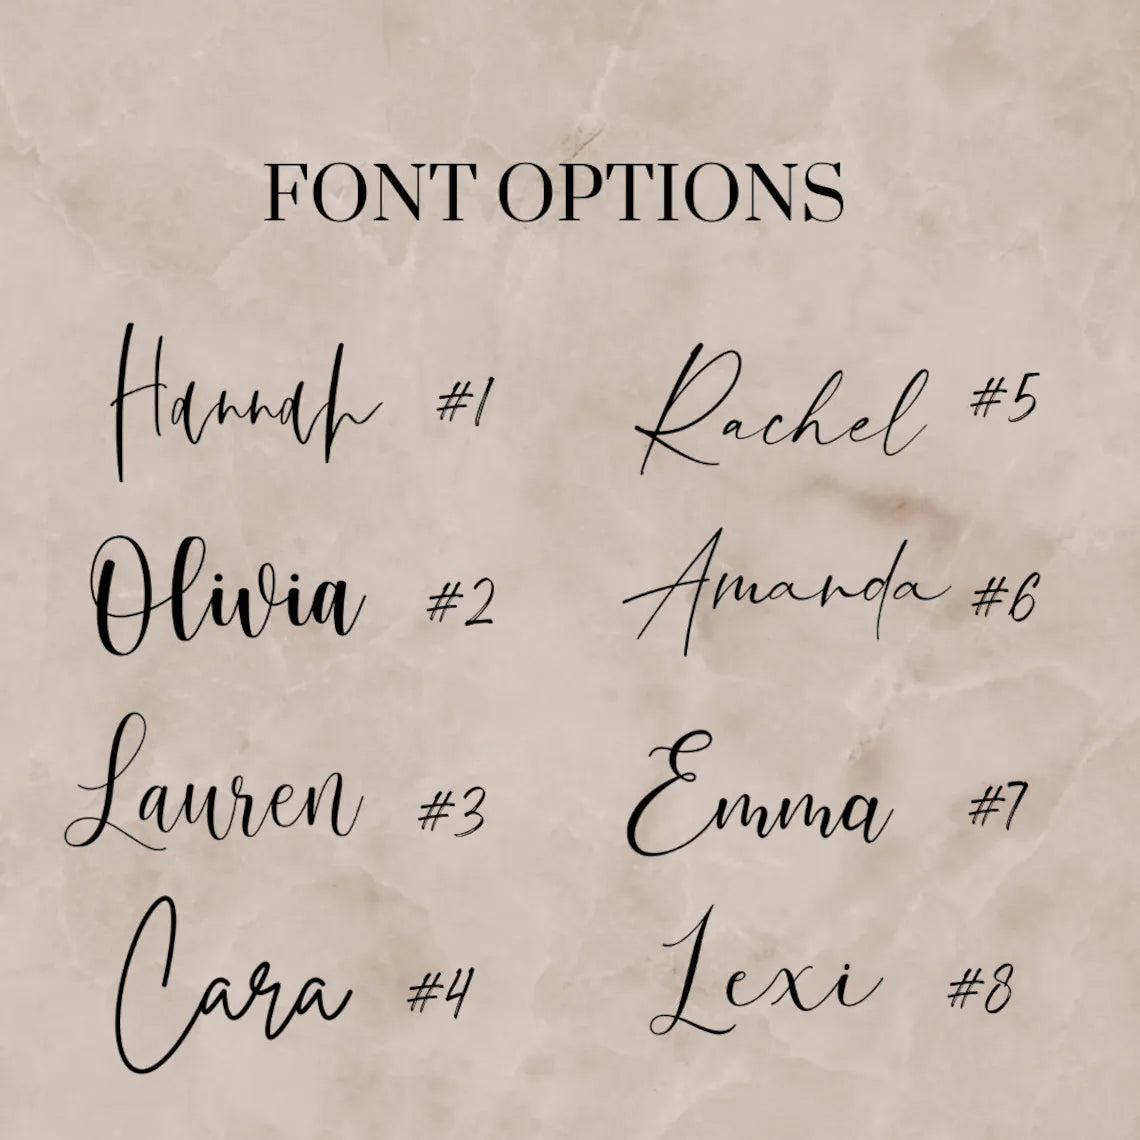 FONT OPTIONS
Hannah #1
Olivia #2
Lauren #3
Cara #4
Rachel #5
Amanda #6
Emma #7
Lexi #8